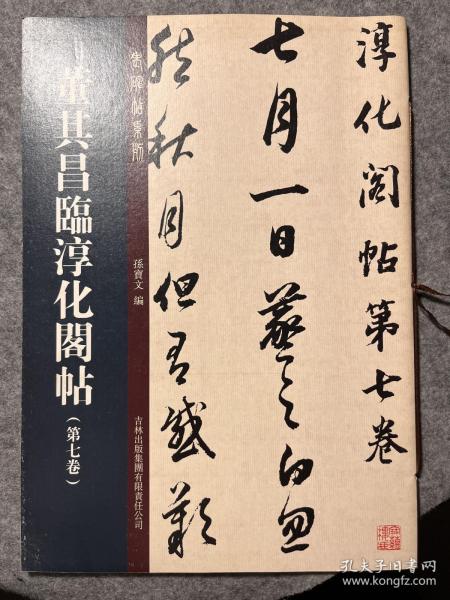 淳化阁帖第七卷
七月一日羲之白忽
然秋月但有感叹
孫寶文 编
吉林出版集團有限責任公司
董其昌臨淳化閣帖
（第七卷）
孔夫子旧书网
www.kongfz.com